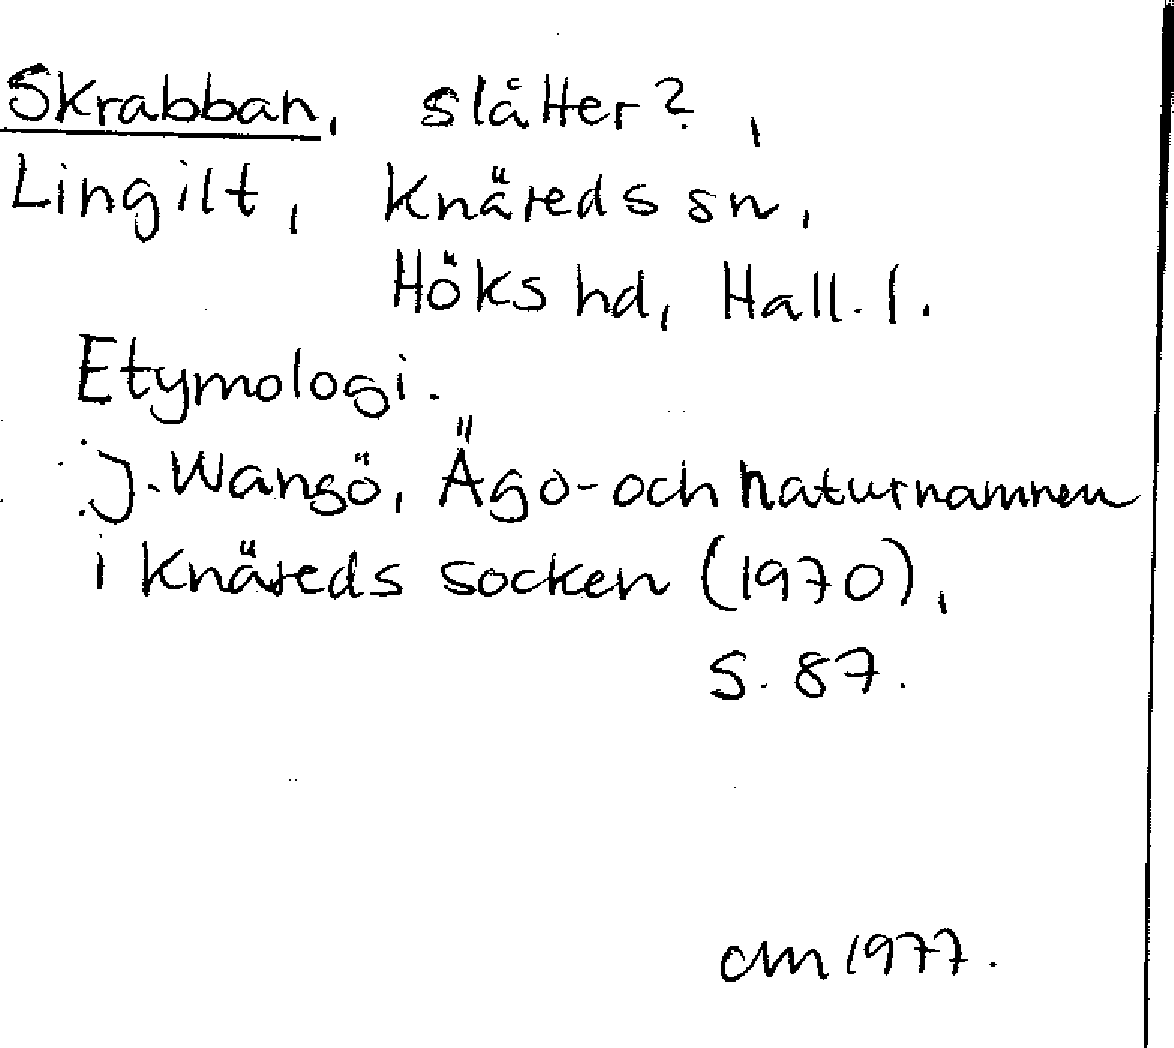 Skrabban, slåtter?,
Lingilt, Knäreds sn,
Höks hd, Hall. l.
Etymologi.
J. Wangö, Ägo- och naturnamnen
i Knäreds socken (1970),
s. 87.
CM 1977.